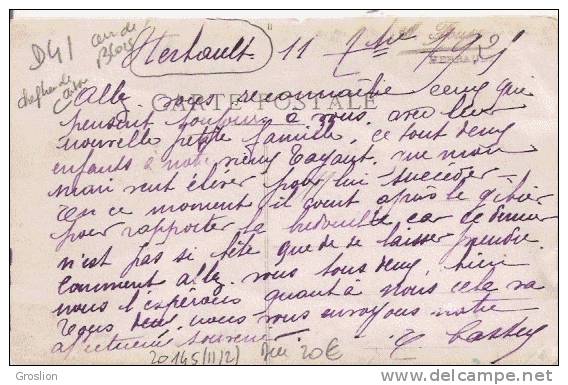 D41
Herbault 11 7bre 1921
CARTE POSTALE
Allez vous reconnaître ceux qui
pensent toujours a vous avec leur
nouvelle petite famille, ce sont deux
enfants à notre vieux Tayaut, que mon
mari veut élever pour lui succéder.
En ce moment il court après le gibier
pour rapporter la bredouille car ce dernier
n'est pas si bête que de se laisser prendre.
Comment allez vous tous deux, bien
nous l'espérons quant à nous cela va
Tous deux nous vous envoyons notre
affectueux souvenir
20145(II(2) 20€
Groslion
delcampe.net